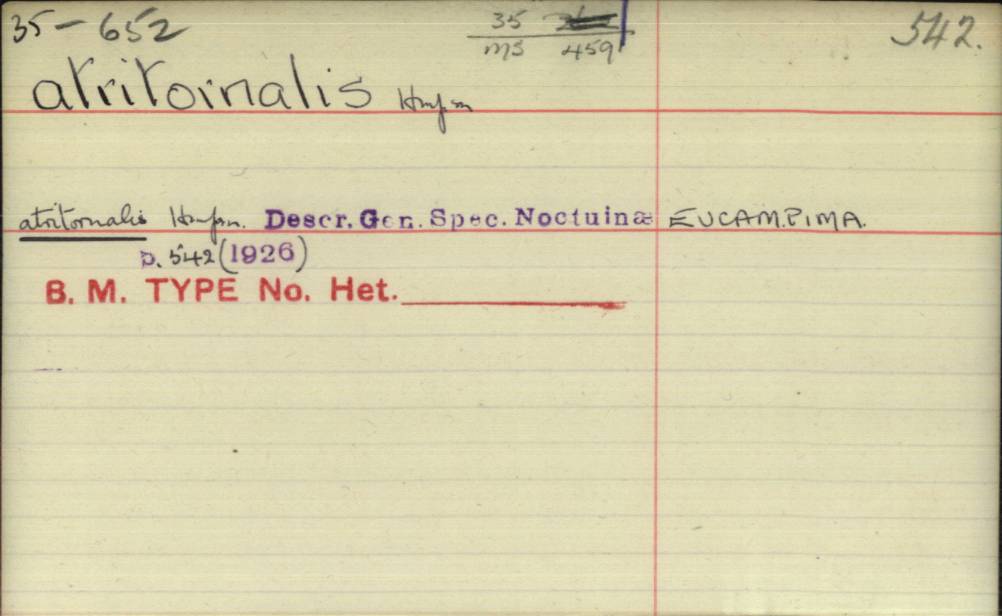 35-652
35
MS 459
542.
atritornalis Hmpsn
atritornalis Hmpsn. Descr. Gen. Spec. Noctuinæ EUCAMPIMA.
p. 542 (1926)
B. M. TYPE No. Het.